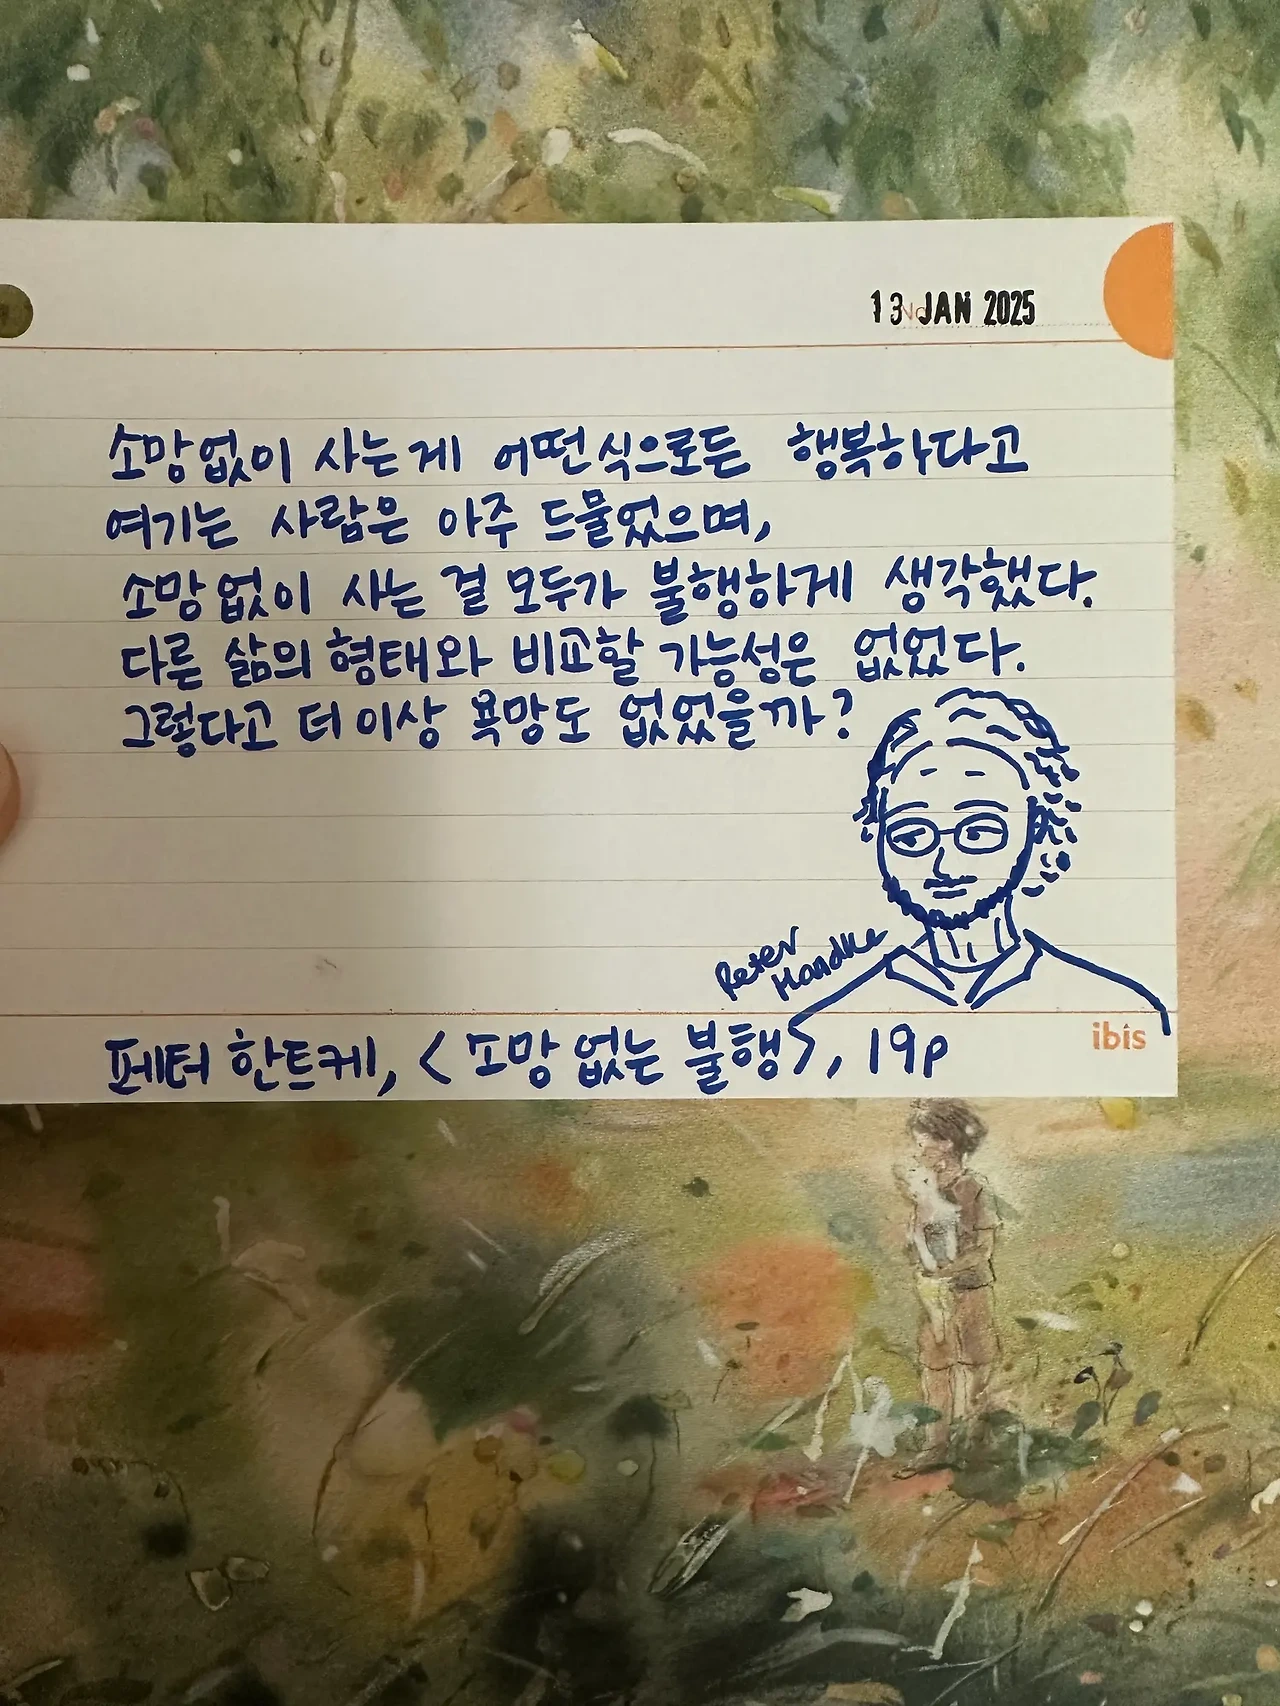 13 JAN 2025
소망없이 사는게 어떤식으로든 행복하다고
여기는 사람은 아주 드물었으며,
소망없이 사는 걸 모두가 불행하게 생각했다.
다른 삶의 형태와 비교할 가능성은 없었다.
그렇다고 더 이상 욕망도 없었을까?
Peter
Handke
ibis
페터 한트케, <소망 없는 불행>, 19p